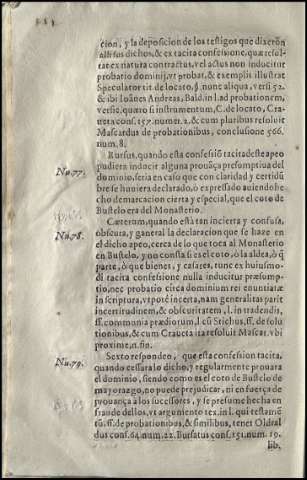 cion, y la deposicion de los testigos que dixerõ
allí sus dichos, & ex tacita confesione, quæ resul-
tat ex natura contractus, vel actus non inducitur
probatio dominij, vt probat, & exemplis illustrat
Speculator tit. de locato, §. nunc aliqua, versi. 52.
& ibi Ioānes Andreas, Bald. in l. ad probationem,
versic. quæro si instrumentum, C. de locato, Cra-
ueta cons. 157. numer. 2. & cum pluribus resoluit
Mascardus de probationibus, conclusione 566.
num. 8.
Nu. 77.
Rursus, quando esta confesiõ tacita deste apeo
pudiera inducir alguna proũaça presumptiua del
dominio, seria en caso que con claridad y certidũ
bre se huuiera declarado, ò expresado auiendo he
cho demarcacion cierta y especial, que el coto de
Bustelo era del Monasterio.
Nu. 78.
Cæterum, quando està tan incierta y confusa,
obscura, y general la declaracion que se haze en
el dicho apeo, cerca de lo que toca al Monasterio
en Bustelo, y no consta si es el coto, ò la aldea, ò q̃
parte, ò que bienes, y casares, tunc ex huiusmo-
di tacita confessione nulla inducitur præsumptio,
nec probatio circa dominium rei enuntiatæ
in scriptura, vtpotè incerta, nam generalitas parit
incertitudinem, & obscuritatem, l. in tradendis,
ff. communia prædiorum, l. cũ Stichus, ff. de solu-
tionibus, & cum Craueta ita resoluit Mascar. vbi
proximè, n. fin.
Nu. 79.
Sexto respondeo, que esta confesion tacita,
quando cessara lo dicho, y regularmente prouara
el dominio, siendo como es el coto de Bustelo de
mayorazgo, no puede prejudicar, ni en fuerça de
prouança à los successores, y se presume hecha en
fraude dellos, vt arguento tex. in l. qui testamẽ
tũ, ff. de probationibus, & similibus, tenet Oldral
dus cons. 64. num. 22. Bursatus cons. 151. num. 19.
lib.